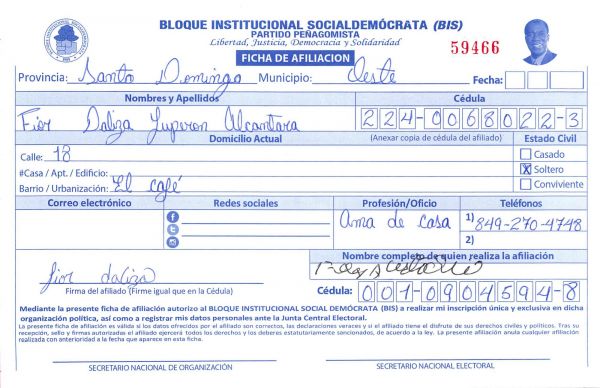 BLOQUE INSTITUCIONAL SOCIALDEMÓCRATA (BIS)
PARTIDO PEÑAGOMISTA
Libertad, Justicia, Democracia y Solidaridad
FICHA DE AFILIACION
59466
Provincia: Santo Domingo Municipio: Oeste Fecha:
Nombres y Apellidos Cédula
Fior Daliza Luperon Alcantara 224-0068022-3
Domicilio Actual (Anexar copia de cédula del afiliado) Estado Civil
Calle: 18 Casado
#Casa / Apt. / Edificio: X Soltero
Barrio / Urbanización: El café Conviviente
Correo electrónico Redes sociales Profesión/Oficio Teléfonos
Ama de casa 1) 849-270-4748
2)
Nombre completo de quien realiza la afiliación
fior daliza
Firma del afiliado (Firme igual que en la Cédula) Cédula: 001-0904594-8
Mediante la presente ficha de afiliación autorizo al BLOQUE INSTITUCIONAL SOCIAL DEMÓCRATA (BIS) a realizar mi inscripción única y exclusiva en dicha
organización política, así como a registrar mis datos personales ante la Junta Central Electoral.
La presente ficha de afiliación es válida si los datos ofrecidos por el afiliado son correctos, las declaraciones veraces y si el afiliado tiene el disfrute de sus derechos civiles y políticos. Tras su
recepción, sello y firmas autorizadas el afiliado ejercerá todos los derechos y los deberes estatutariamente sancionados, de acuerdo a la ley. La presente afiliación anula cualquier afiliación
realizada con anterioridad a la fecha que aparece en esta ficha.
SECRETARIO NACIONAL DE ORGANIZACIÓN SECRETARIO NACIONAL ELECTORAL